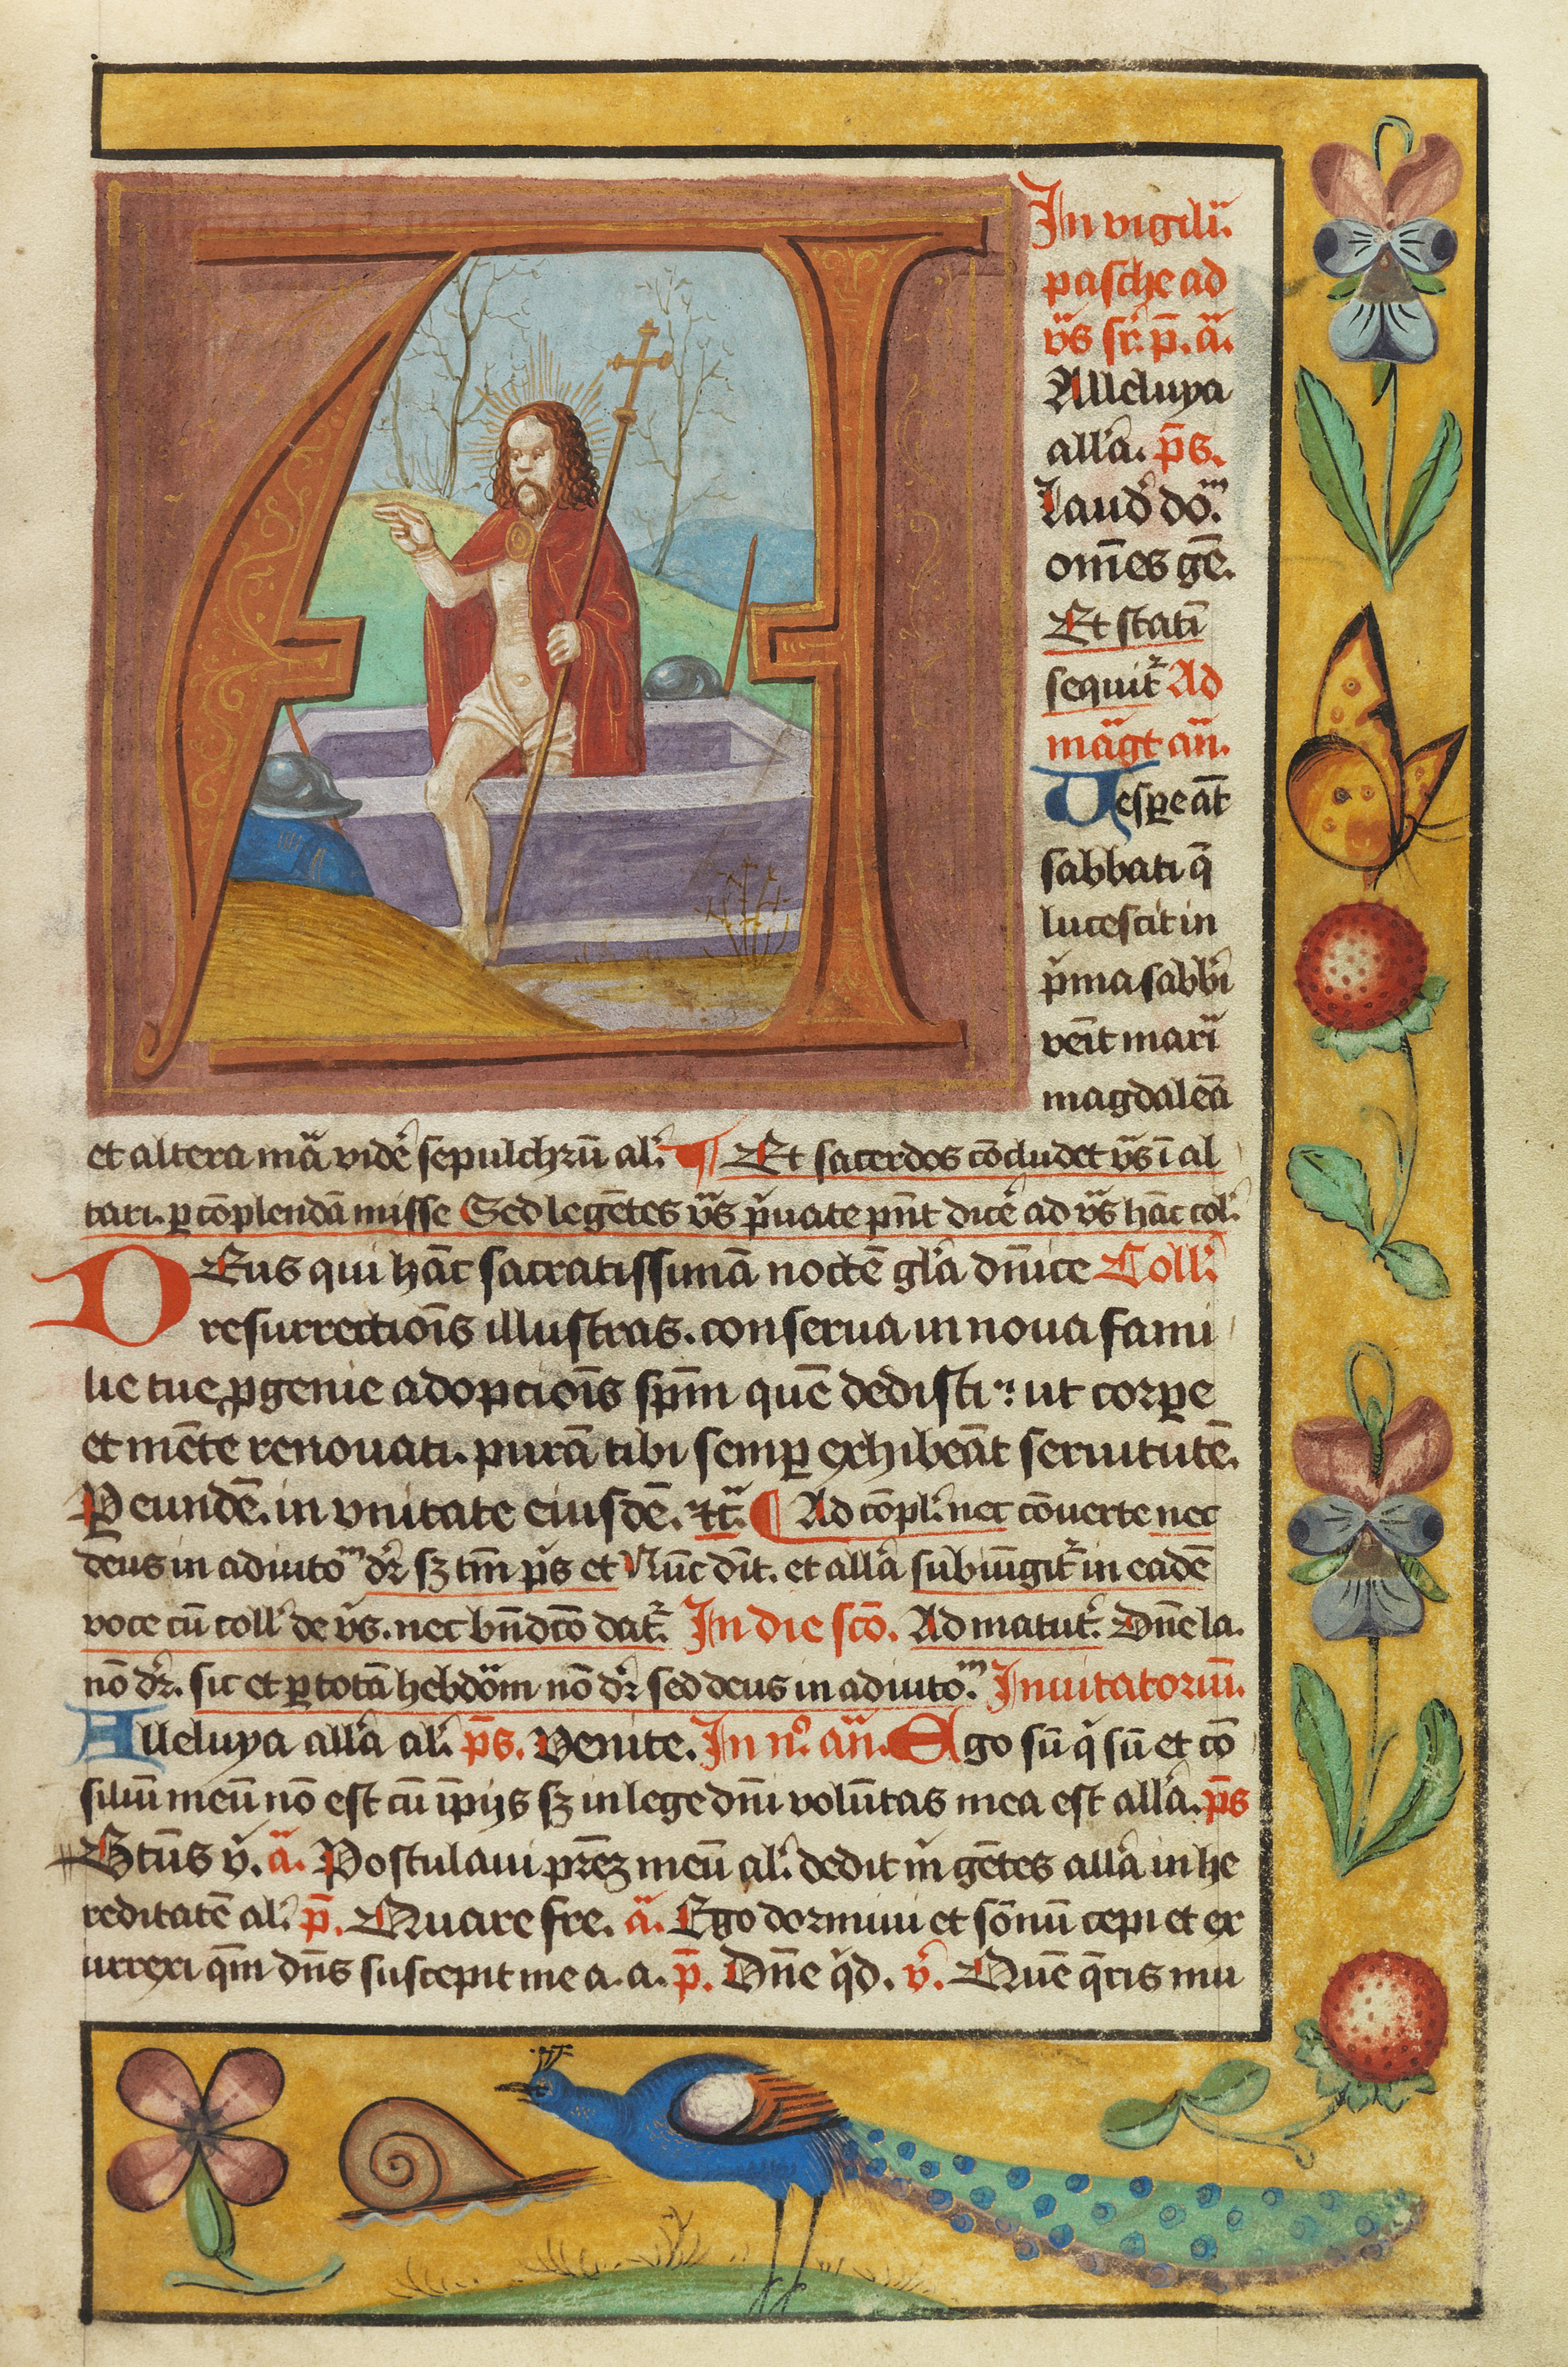 In vigilia
pasche ad
vs̄ sr̄. p̄. ā.
Alleluya
all'a. p̄s.
Laud' do.m
om̄es gē.
Et stati᷒̄
sequit᷑ Ad
māgt an̄.
Vespe aūt
sabbati q̄
lucescit in
p'ma sabb'i
venit mari'
magdalen̄a
et altera m̄a vide' sepulchrū al'. ¶ Et sacerdos cōcludet vs̄ ī al
tari. ꝑ cōplendā misse Sed legētes vs̄ p'uate pn̄t dice' ad vs̄ hāc col'.
DEus qui hāc sacratissimā noctē gl'a dn̄ice Coll'
resurrectiōis illustras. conserua in noua fami
lie tue ꝓgenie adopciōis sp̄m quē dedisti: ut corꝑe
et mēte renouati. purā tibi semꝑ exhibeāt seruitutē.
P eundē. in vnitate eiusdē. ⁊c̄. ¶ Ad cōpl'. nec cōuerte nec
deus in adiutom dr̄ sꝫ tm̄ p̄s et Nūc dit. et all'a subiūgit᷑ in eadē
voce cū coll' de vs̄. nec bn̄dcō dat᷑. In die scō. Ad matut'. Dn̄e la.
nō dr̄. sic et ꝑ totā hebdōm nō dr̄ sed deus in adiutom. Inuitatoriū.
Alleluya all'a al'. p̄s. Venite. In n.o an̄. Ego sū q' sū et cō
siliū meū nō est cū īpijs sꝫ in lege dn̄i volūtas mea est all'a. p̄s
Btūs v'. ā. Postulaui pr̄eꝫ meū al'. dedit m' gētes all'a in he
reditatē al'. p̄. Quare fre. ā. Ego dormiui et sōnū cepi et ex
urrexi qm̄ dn̄s suscepit me a. a. p̄. Dn̄e q'd. v'. Quē q̄ris mu